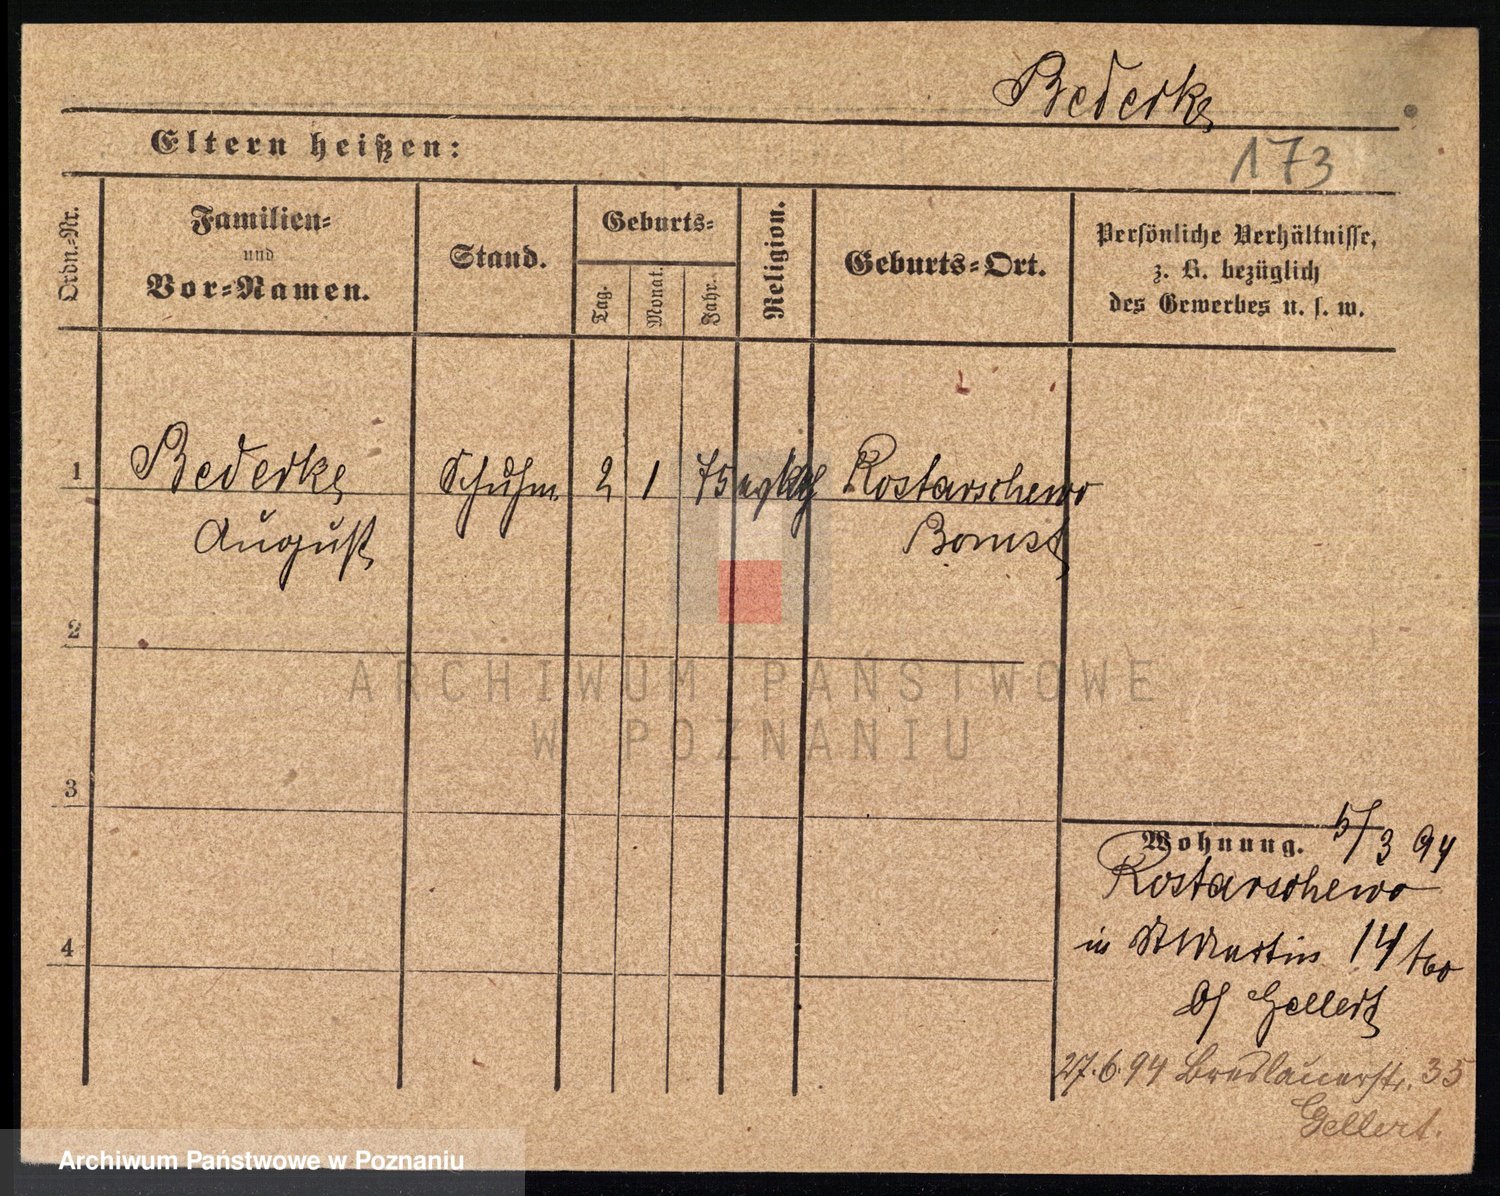 Bederke
Eltern heißen:
173
Ordn.-Nr.
Familien-
und
Vor-Namen.
Stand.
Geburts-
Tag.
Monat.
Jahr.
Religion.
Geburts-Ort.
Persönliche Verhältnisse,
z. B. bezüglich
des Gewerbes u. s. w.
1 Bederke Schuhm. 2 1 75 Rostarschewo
August Bomst
2
3
4
ARCHIWUM PAŃSTWOWE
W POZNANIU
Wohnung. 5/3 94
Rostarschewo
in St Martin 14
Gellert
27.6.94 Breslauerstr. 35
Gellert.
Archiwum Państwowe w Poznaniu